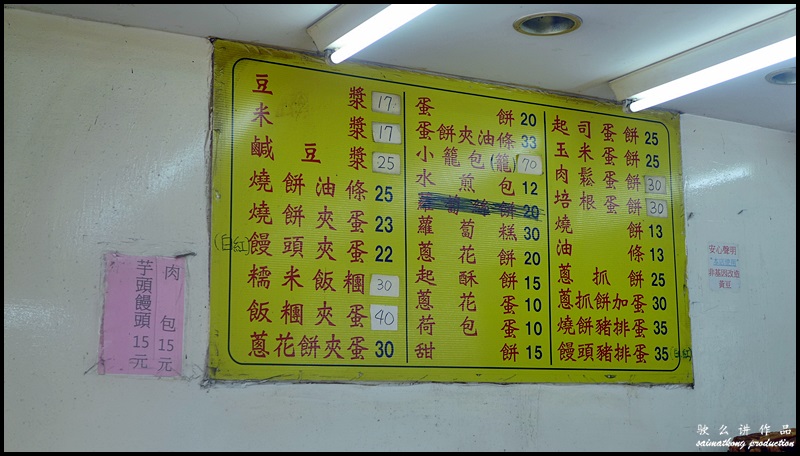 豆漿 17
米漿 17
鹹豆漿 25
燒餅油條 25
燒餅夾蛋 23
(白紅)饅頭夾蛋 22
糯米飯糰 30
飯糰夾蛋 40
蔥花餅夾蛋 30
蛋餅 20
蛋餅夾油條 33
小籠包(籠) 70
水煎包 12
蘿蔔糕 30
蔥花餅 20
起酥餅 15
蔥花蛋 10
荷包蛋 10
甜餅 15
起司蛋餅 25
玉米蛋餅 25
肉鬆蛋餅 30
培根蛋餅 30
燒餅 13
油條 13
蔥抓餅 25
蔥抓餅加蛋 30
燒餅豬排蛋 35
饅頭豬排蛋 35
肉包 15元
芋頭饅頭 15元
安心聲明
非基因改造
黃豆
驶么讲作品
saimatkong production